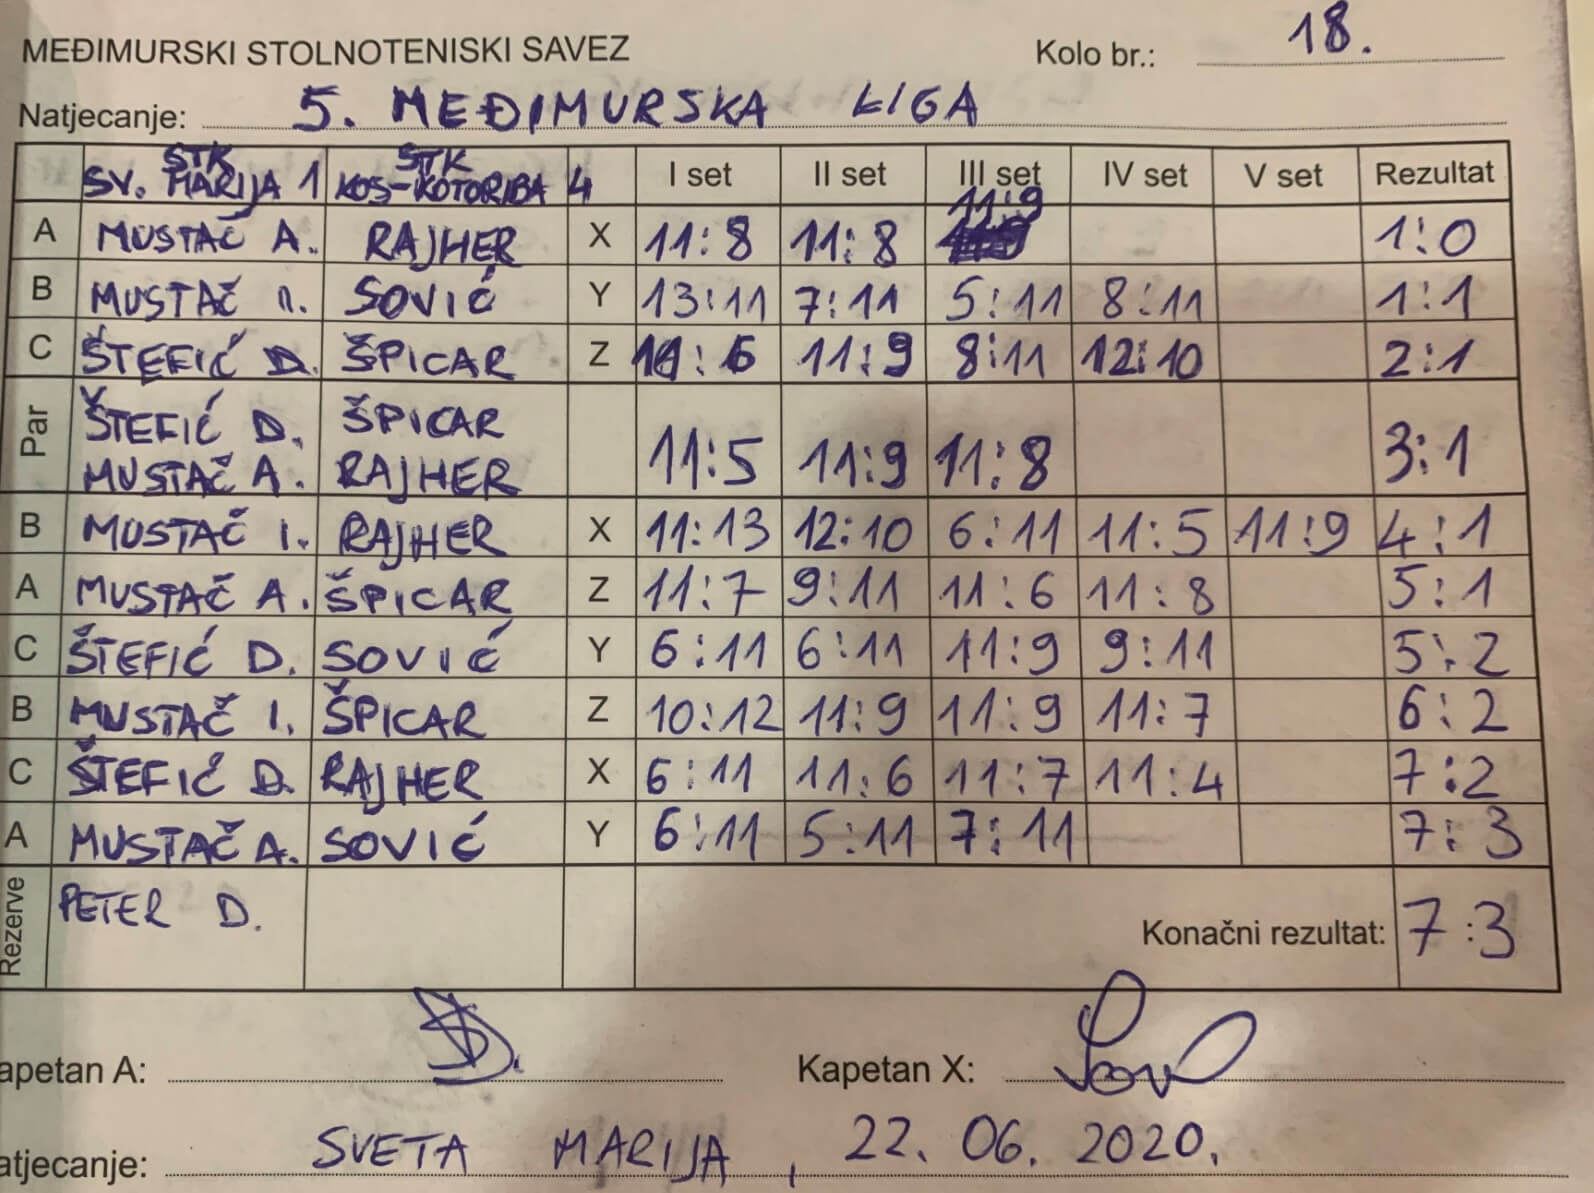 MEĐIMURSKI STOLNOTENISKI SAVEZ Kolo br.: 18.
Natjecanje: 5. MEĐIMURSKA LIGA
STK SV. MARIJA 1 STK KOS-KOTORIBA 4 I set II set III set IV set V set Rezultat
A MUSTAČ A. RAJHER X 11:8 11:8 11:9 1:0
B MUSTAČ I. SOVIĆ Y 13:11 7:11 5:11 8:11 1:1
C ŠTEFIĆ D. ŠPICAR Z 11:6 11:9 8:11 12:10 2:1
Par ŠTEFIĆ D. ŠPICAR
MUSTAČ A. RAJHER 11:5 11:9 11:8 3:1
B MUSTAČ I. RAJHER X 11:13 12:10 6:11 11:5 11:9 4:1
A MUSTAČ A. ŠPICAR Z 11:7 9:11 11:6 11:8 5:1
C ŠTEFIĆ D. SOVIĆ Y 6:11 6:11 11:9 9:11 5:2
B MUSTAČ I. ŠPICAR Z 10:12 11:9 11:9 11:7 6:2
C ŠTEFIĆ D. RAJHER X 6:11 11:6 11:7 11:4 7:2
A MUSTAČ A. SOVIĆ Y 6:11 5:11 7:11 7:3
Rezerve PETER D. Konačni rezultat: 7:3
apetan A: Kapetan X:
atjecanje: SVETA MARIJA, 22. 06. 2020.